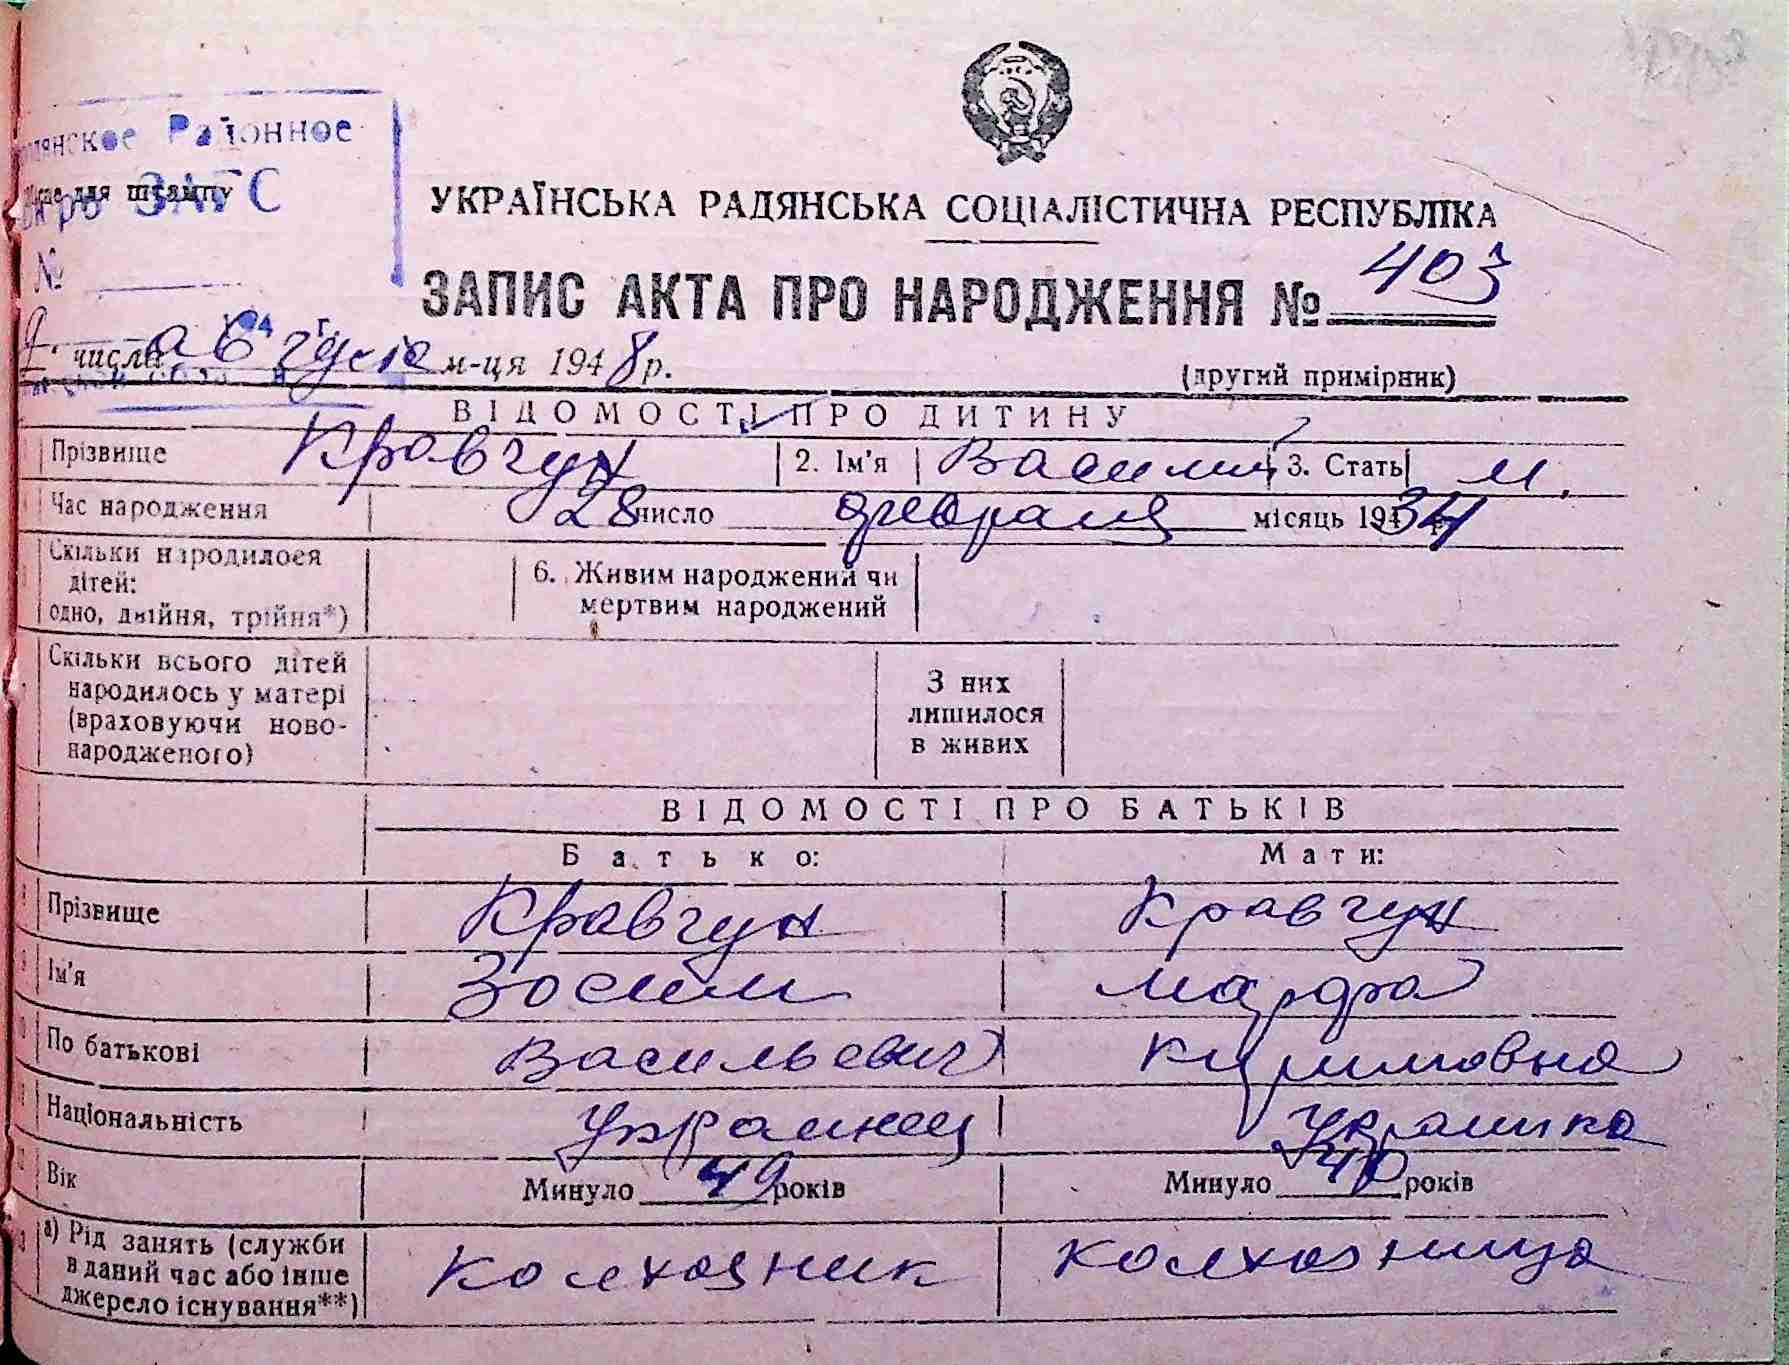 Районное
Місце для штампу
бюро ЗАГС
№
УКРАЇНСЬКА РАДЯНСЬКА СОЦІАЛІСТИЧНА РЕСПУБЛІКА
ЗАПИС АКТА ПРО НАРОДЖЕННЯ № 403
числа августа м-ця 1948 р.
(другий примірник)
ВІДОМОСТІ ПРО ДИТИНУ
Прізвище Кравчун 2. Ім'я Василий 3. Стать м.
Час народження 28 число февраля місяць 1934
Скільки народилося дітей: одно, двійня, трійня*)
6. Живим народжений чи мертвим народжений
Скільки всього дітей народилось у матері (враховуючи ново-народженого)
З них лишилося в живих
ВІДОМОСТІ ПРО БАТЬКІВ
Батько: Мати:
Прізвище Кравчун Кравчун
Ім'я Зосим Марфа
По батькові Васильевич
Національність Украинец Украинка
Вік Минуло 49 років Минуло 40 років
а) Рід занять (служби в даний час або інше джерело існування**) Колхозник Колхозница